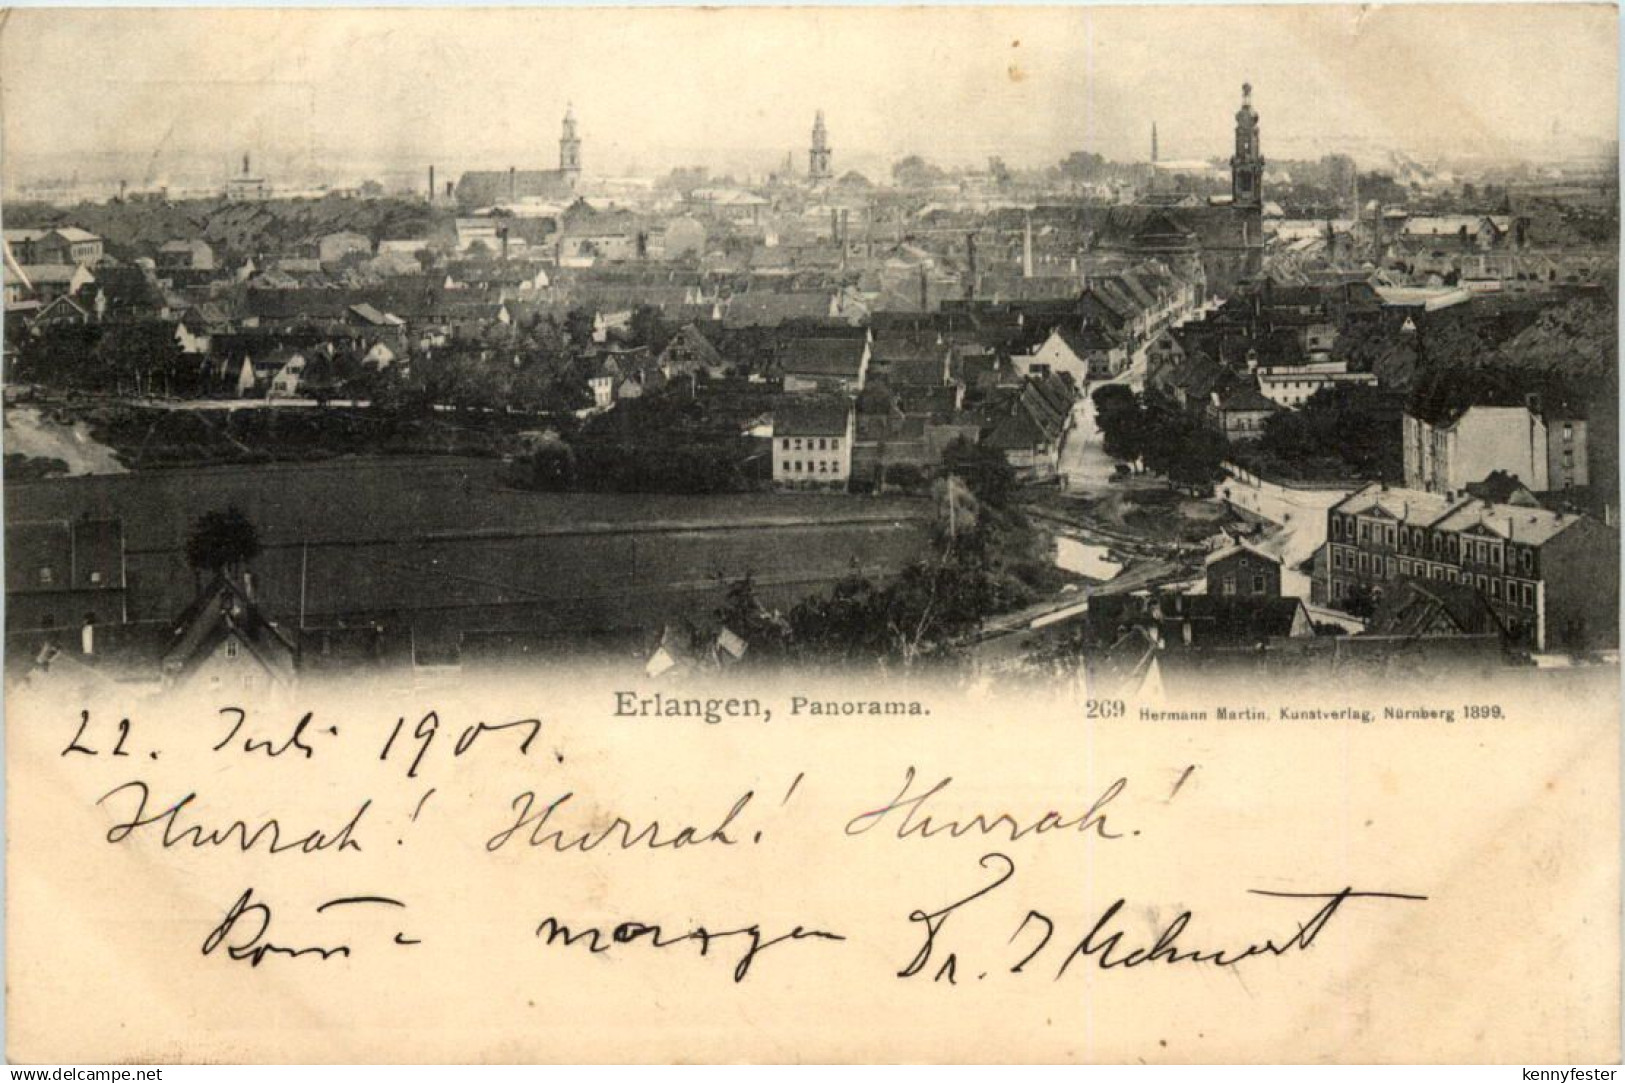 Erlangen, Panorama.
269 Hermann Martin, Kunstverlag, Nürnberg 1899.
22. Juli 1901.
Hurrah! Hurrah! Hurrah!
morgen Dr.
www.delcampe.net
kennyfester